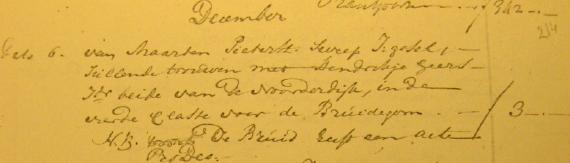 Transport 342 -.-
December
214
Dato 6. van Maarten Pietersz. Sweep Jigezel,
zullende trouwen met Hendrikje Geers-
Jdr beide van de Noorderdijk, in de
vierde Classe voor de Bruidegom. - 3 -.-
N.B. De Bruid heeft een acte
Pro Deo.-